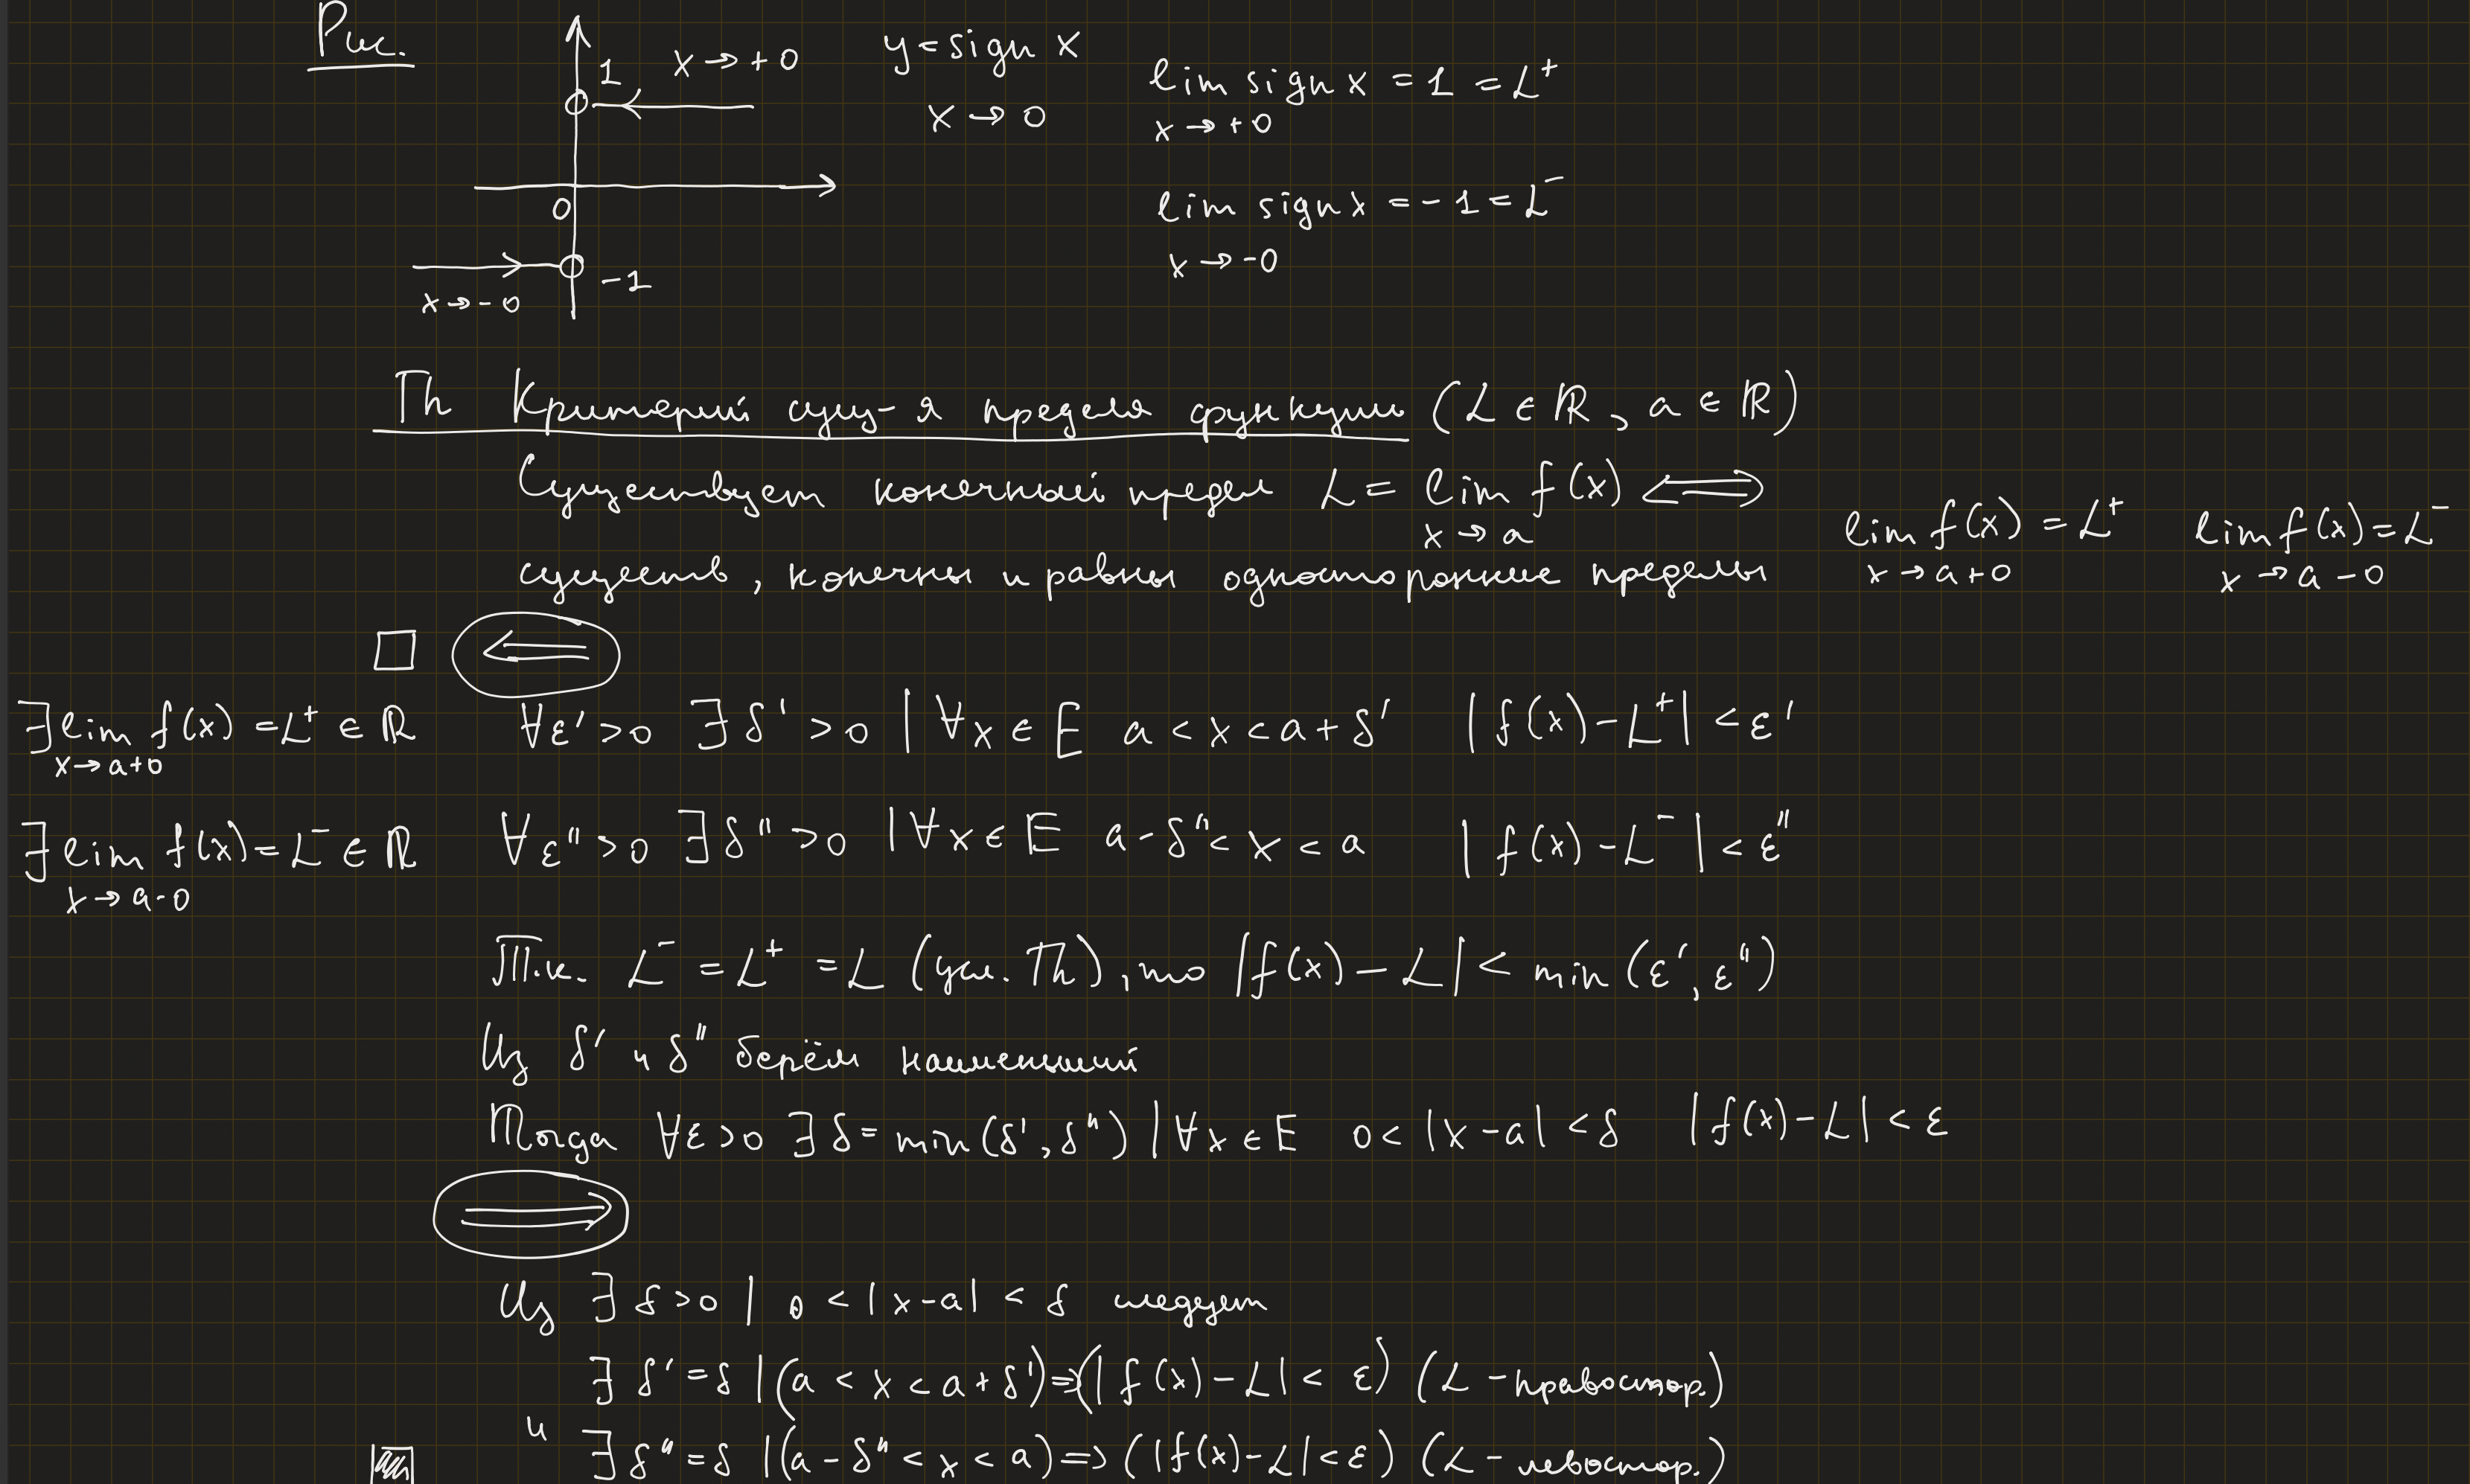 Рис.
1 x→+0 y=sign x lim sign x = 1 = L⁺
x→0 x→+0
0 lim sign x = -1 = L⁻
x→-0
x→-0 -1
Th Критерий сущ-я предела функции (L∈ℝ, a∈ℝ)
Существует конечный предел L = lim f(x) ⟺
x→a
lim f(x) = L⁺ lim f(x) = L⁻
существ, конечны и равны односторонние пределы x→a+0 x→a-0
□ ⟸
∃ lim f(x) = L⁺ ∈ ℝ ∀ε' > 0 ∃δ' > 0 | ∀x∈E a < x < a+δ' |f(x)-L⁺| < ε'
x→a+0
∃ lim f(x) = L⁻ ∈ ℝ ∀ε'' > 0 ∃δ'' > 0 | ∀x∈E a-δ'' < x < a |f(x)-L⁻| < ε''
x→a-0
Т.к. L⁻ = L⁺ = L (усл. Th), то |f(x)-L| < min(ε', ε'')
Из δ' и δ'' берём наименьший
Тогда ∀ε>0 ∃δ = min(δ', δ'') | ∀x∈E 0 < |x-a| < δ |f(x)-L| < ε
⟹
Из ∃δ>0 | 0 < |x-a| < δ следует
∃δ' = δ | (a < x < a+δ') ⇒ (|f(x)-L| < ε) (L - правостор.)
и ∃δ'' = δ | (a-δ'' < x < a) ⇒ (|f(x)-L| < ε) (L - левостор.)